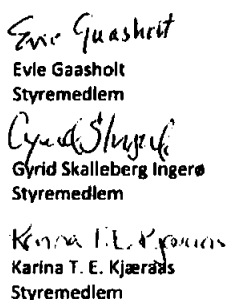 Evie Gaasholt
Evle Gaasholt
Styremedlem
Gyrid Skalleberg Ingerø
Styremedlem
Karina T. E. Kjæraas
Karina T. E. Kjæraas
Styremedlem